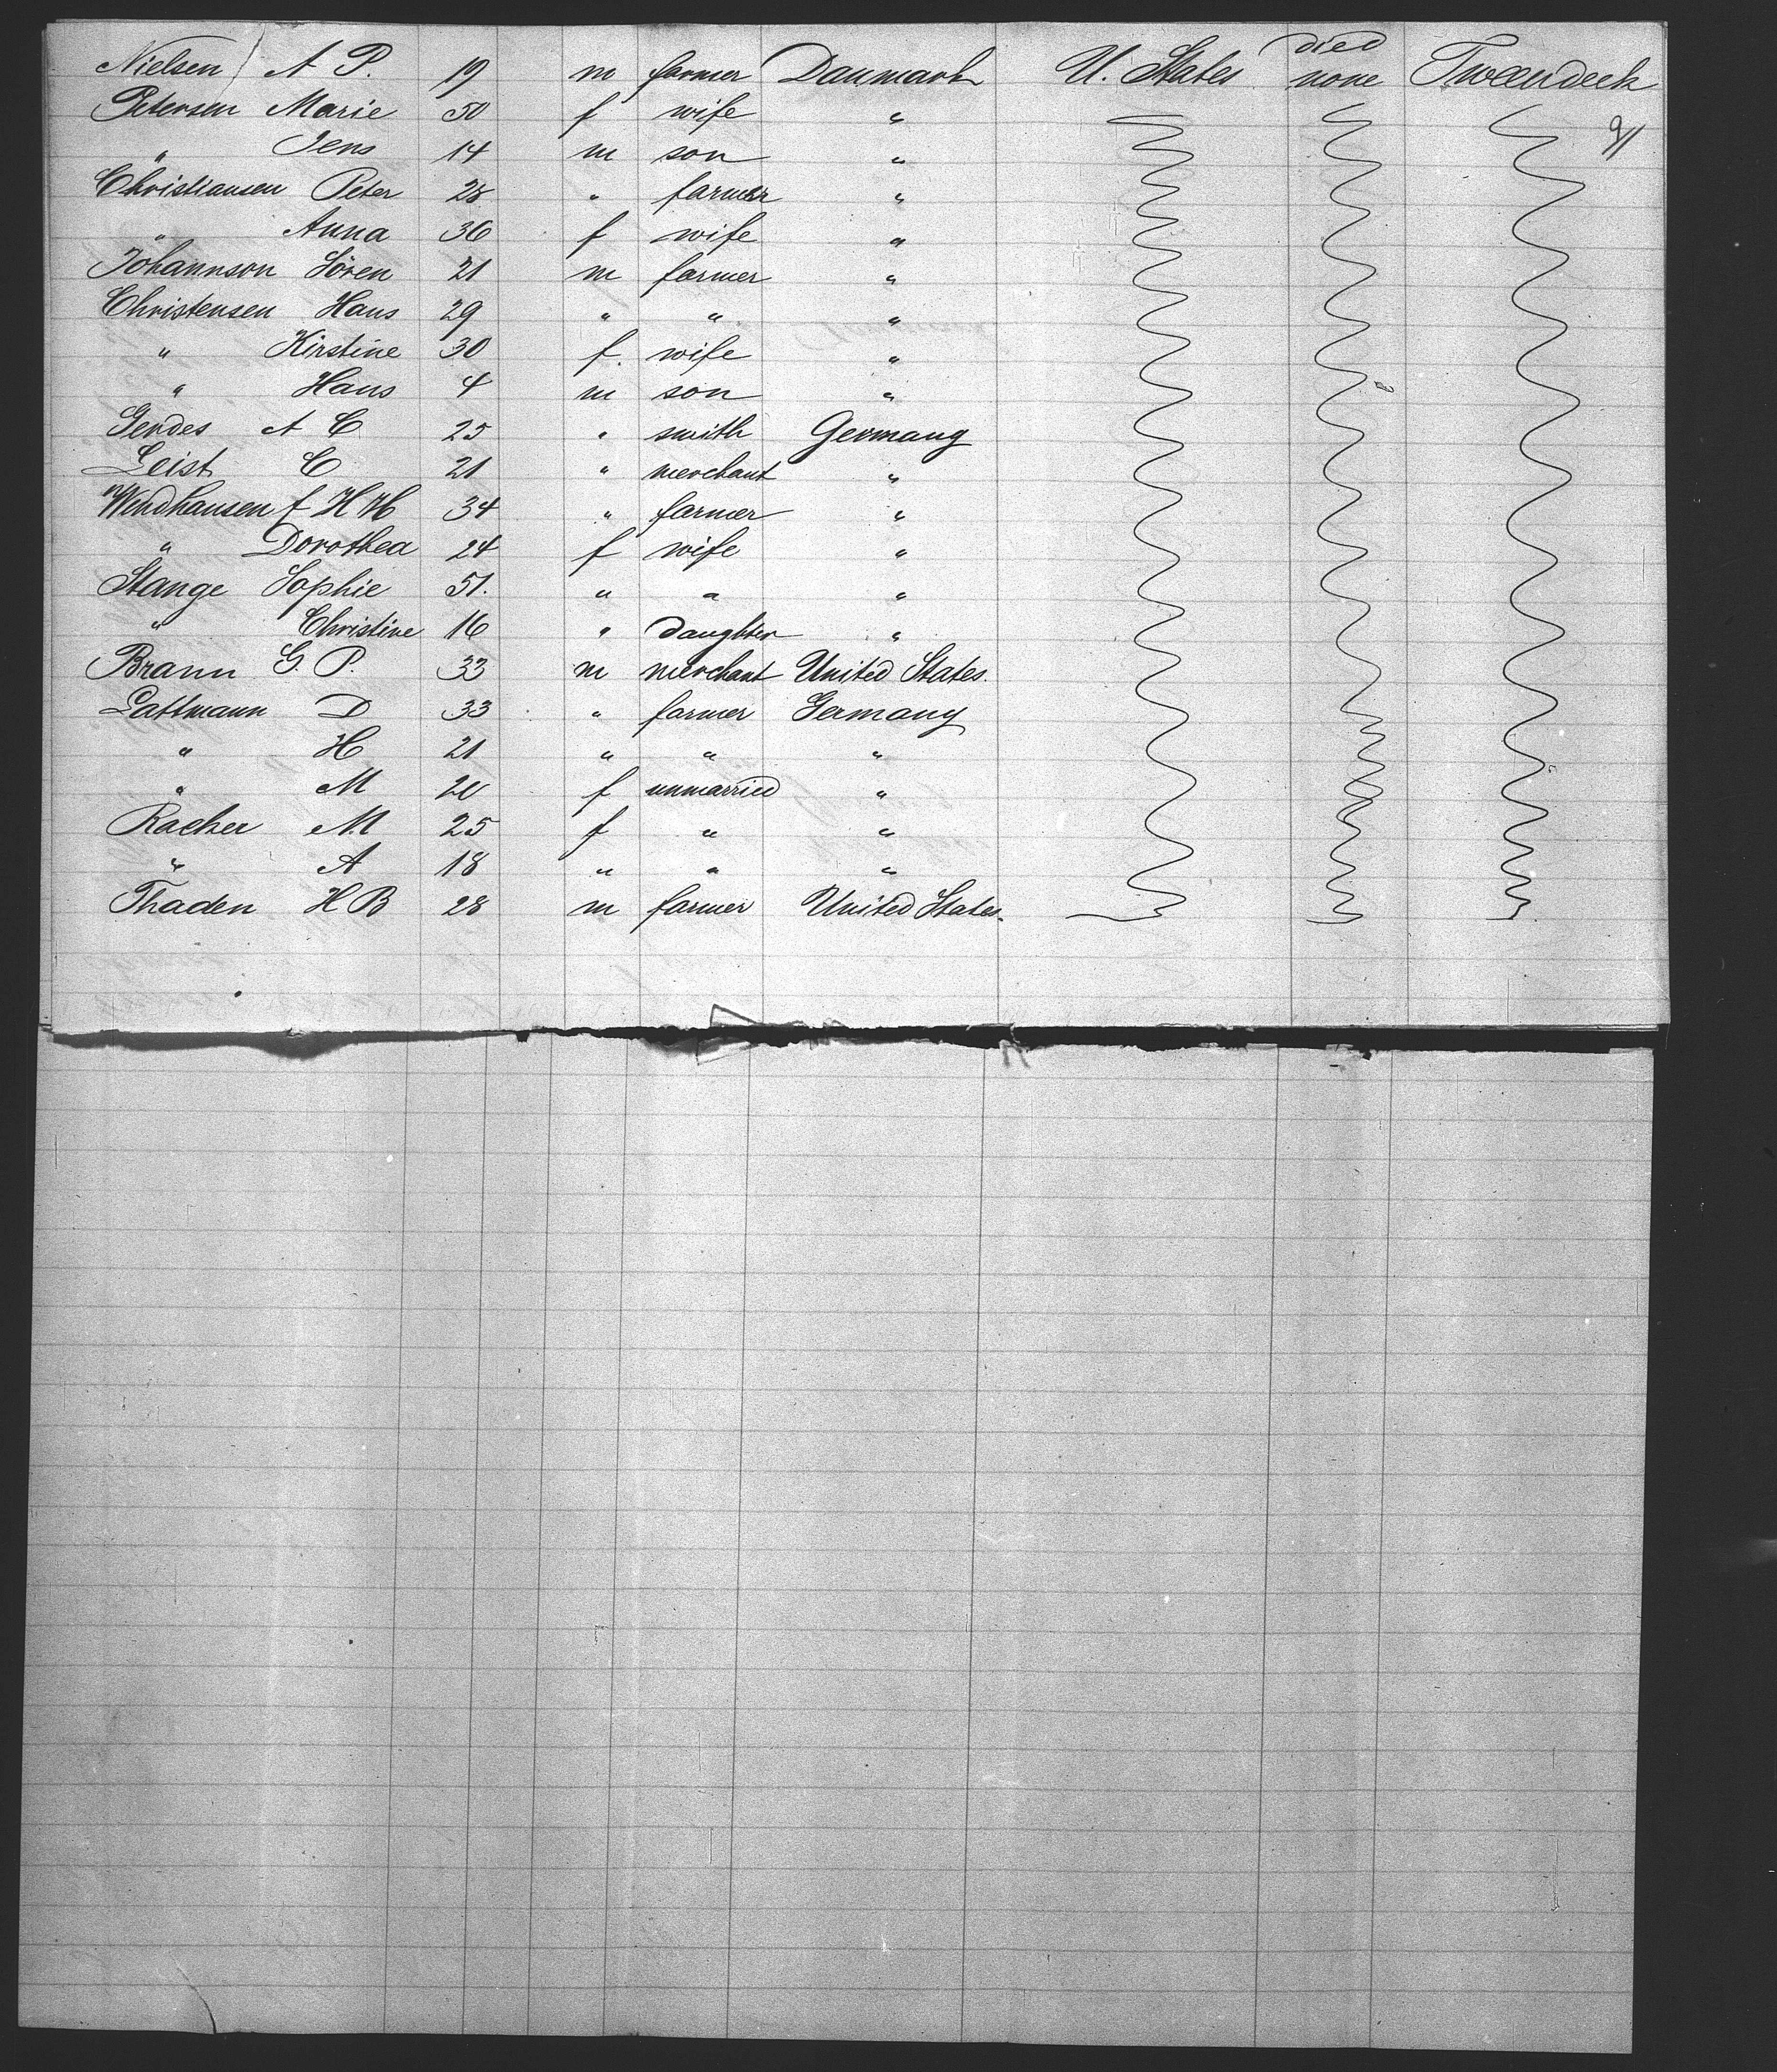 Nielsen A P. 19 m farmer Danmark U. States died none Tweendeck
Petersen Marie 50 f wife "
" Jens 14 m son " 91
Christiansen Peter 28 " farmer "
" Anna 36 f wife "
Johannson Sören 21 m farmer "
Christensen Hans 29 " " "
" Kirstine 30 f. wife "
" Hans 4 m son "
Gerdes A C 25 " smith Germany
Leist C 21 " merchant "
Wendhausen f H H 34 " farmer "
" Dorothea 24 f wife "
Stange Sophie 51. " " "
" Christine 16 " daughter "
Brann G. P. 33 m merchant United States.
Lattmann D 33 " farmer Germany
" H 21 " " "
" M 20 f unmarried "
Racker M 25 f " "
" A 18 " " "
Thaden H B 28 m farmer United States.